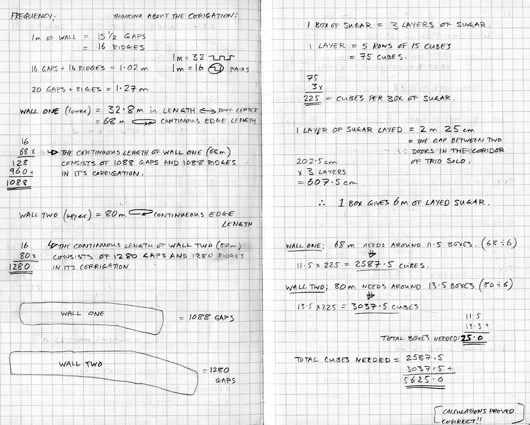 FREQUENCY; THINKING ABOUT THE CORIGATION:
1m OF WALL = 15 1/2 GAPS
= 16 RIDGES
1m = 32
16 GAPS + 16 RIDGES = 1.02m 1m = 16 PAIRS
20 GAPS + RIGES = 1.27m
WALL ONE (lower) = 32.8m in LENGTH DOWN CENTER
= 68m CONTINOUS EDGE LENGTH
16
68 x
128
960 +
1088
THE CONTINUOUS LENGTH OF WALL ONE (68m)
CONSISTS OF 1088 GAPS AND 1088 RIDGES
IN ITS CORRIGATION.
WALL TWO (upper) = 80m CONTINUEOUS EDGE
LENGTH
16
80x
1280
THE CONTINUOUS LENGTH OF WALL TWO (80m)
CONSISTS OF 1280 GAPS AND 1280 RIDGES
IN ITS CORRIGATION.
WALL ONE = 1088 GAPS
WALL TWO = 1280
GAPS
1 BOX OF SUGAR = 3 LAYERS OF SUGAR
1 LAYER = 5 ROWS OF 15 CUBES
= 75 CUBES.
75
3x
225 = CUBES PER BOX OF SUGAR.
1 LAYER OF SUGAR LAYED = 2m 25cm
= THE GAP BETWEEN TWO
DOORS IN THE CORIDOR
OF TRIO SOLO.
202.5cm
x 3 LAYERS
= 607.5cm
∴ 1 BOX GIVES 6m OF LAYED SUGAR.
WALL ONE; 68m NEEDS AROUND 11.5 BOXES. (68÷6)
11.5 x 225 = 2587.5 CUBES.
WALL TWO; 80m NEEDS AROUND 13.5 BOXES (80÷6)
13.5 x 225 = 3037.5 CUBES
11.5
13.5 +
TOTAL BOXES NEEDED: 25.0
TOTAL CUBES NEEDED = 2587.5
3037.5 +
5625.0
[CALCULATIONS PROVED
CORRECT!!]